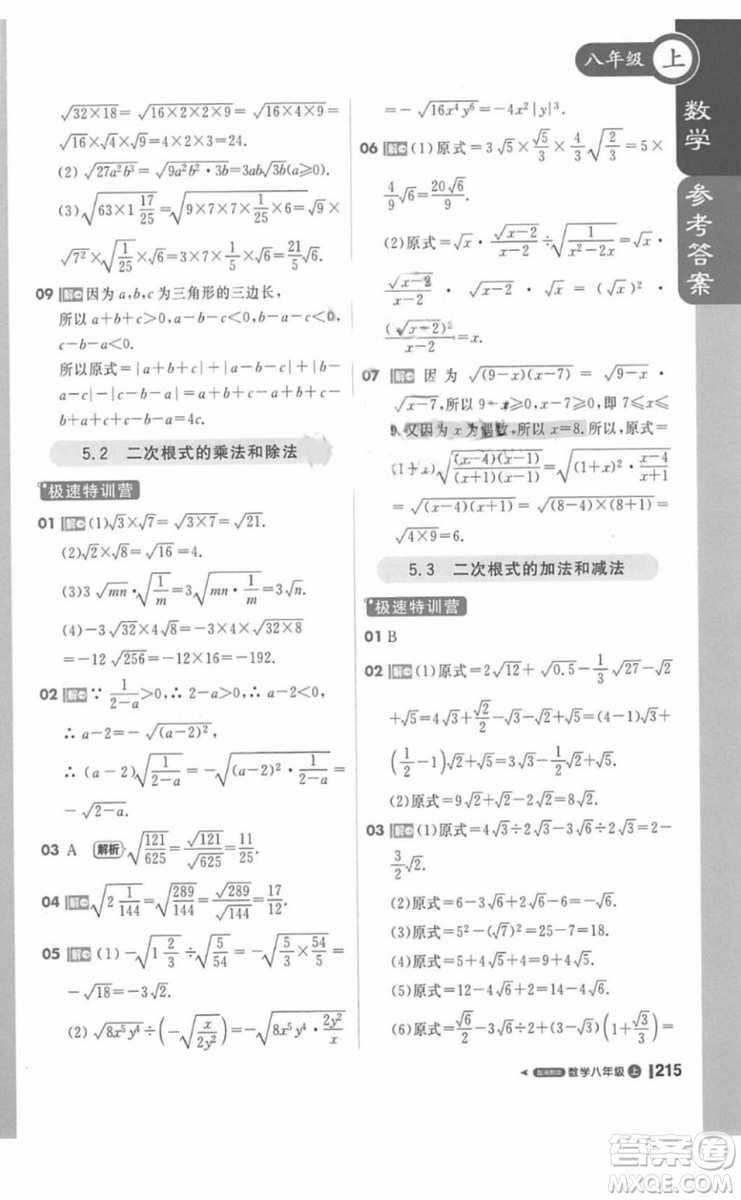 八年级 上
数学
参考答案
√(32×18)=√(16×2×2×9)=√(16×4×9)=
√16×√4×√9=4×2×3=24.
(2) √(27a²b³)=√(9a²b²·3b)=3ab√(3b)(a≥0).
(3)√(63×1 17/25)=√(9×7×7×1/25×6=)√9×
√(7²)×√(1/25)×√6=3×7×1/5×√6=21/5 √6.
09 解 因为a,b,c为三角形的三边长,
所以a+b+c>0,a-b-c<0,b-a-c<0,
c-b-a<0.
所以原式=|a+b+c|+|a-b-c|-|b-
a-c|-|c-b-a|=a+b+c-a+b+c+b-
a-c+c-b-a=4c.
5.2 二次根式的乘法和除法
极速特训营
01 解 (1)√3×√7=√(3×7)=√21.
(2)√2×√8=√16=4.
(3)3√(mn)·√(1/m)=3√(mn·1/m)=3√n.
(4)-3√32×4√8=-3×4×√(32×8)
=-12√256=-12×16=-192.
02 解 ∵1/(2-a)>0,∴2-a>0,∴a-2<0.
∴a-2=-√((a-2)²),
∴(a-2)√(1/(2-a))=-√((a-2)²·1/(2-a))=
-√(2-a).
03 A 解析 √(121/625)=√121/√625=11/25.
04 解 √(2 1/144)=√(289/144)=√289/√144=17/12.
05 解 (1)-√(1 2/3)÷√(5/54)=-√(5/3×54/5)=
-√18=-3√2.
(2) √(8x⁵y⁴)÷(-√(x/2y²))=-√(8x⁵y⁴·2y²/x)
=-√(16x⁴y⁶)=-4x²|y|³.
06 解 (1)原式=3√5×√5/3×4/3√(2/3)=5×
4/9√6=20√6/9.
(2)原式=√x·√(x-2)/(x-2)÷√(1/(x²-2x))=√x·
√(x-2)/(x-2)·√x·√(x-2)=(√x)²·
(√(x-2))²/(x-2)=x.
07 解 因为√((9-x)(x-7))=√(9-x)·
√(x-7),所以9-x≥0,x-7≥0,即7≤x≤
9.又因为x为偶数,所以x=8.原式=
(1+x)√((x-4)(x-1)/((x+1)(x-1)))=√((1+x)²·(x-4)/(x+1))
=√((x-4)(x+1))=√((8-4)×(8+1))=
√(4×9)=6.
5.3 二次根式的加法和减法
极速特训营
01 B
02 解 (1)原式=2√12+√0.5-1/3√27-√2
+√5=4√3+√2/2-√3-√2+√5=3√3+
(1/2-1)√2+√5=3√3-1/2√2+√5.
(2)原式=9√2+√2-8√2=2√2.
03 解 (1)原式=4√3÷2√3-3√6÷2√3=2-
3/2√2.
(2)原式=6-3√6+2√6-6=-√6.
(3)原式=5²-(√7)²=25-7=18.
(4)原式=9-6√2+2=11-6√2.
(5)原式=12-4√6+2=14-4√6.
(6)原式=(√6/2-6√6+3√6)(1+√3/3)=
配湘教版 数学八年级 上 215
答案圈
MXQE.COM